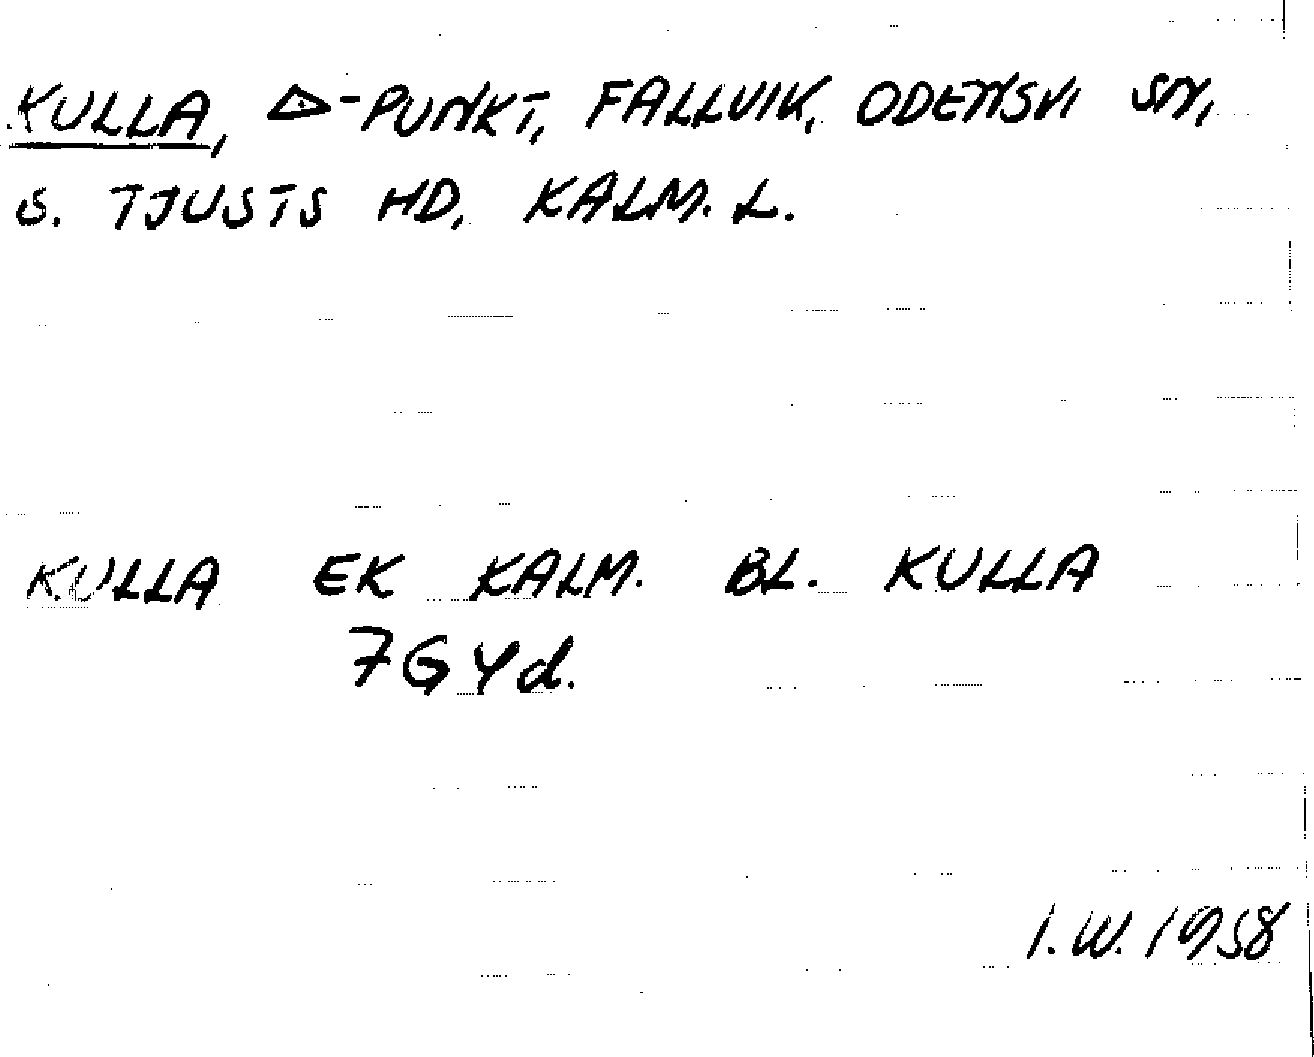 KULLA, △-PUNKT, FALLVIK, ODENSVI SN,
S. TJUSTS HD, KALM. L.
KULLA EK KALM. BL. KULLA
7G4d.
I.W. 1958